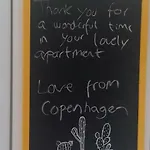 Thank you for
a wonderful time
in your lovely
apartment
Love from
Copenhagen